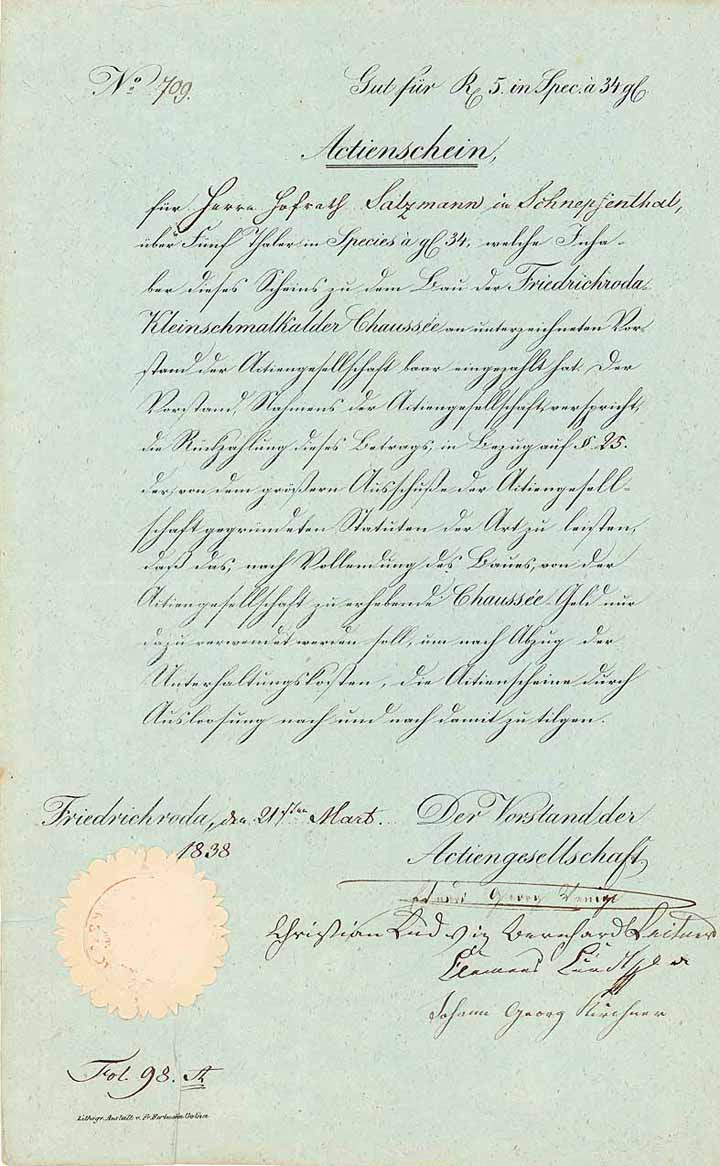 No. 709. Gut für Rt. 5. in Spec. à 34 gl.
Actienschein,
für Herrn Hofrath Salzmann in Schnepfenthal,
über Fünf Thaler in Species à gl. 34, welche Inha-
ber dieses Scheins zu dem Bau der Friedrichroda-
Kleinschmalkalder Chaussée an unterzeichneten Vor-
stand der Actiengesellschaft baar eingezahlt hat. Der
Vorstand, Nahmens der Actiengesellschaft, verspricht,
die Rückzahlung dieses Betrags, in Bezug auf §. 25.
der, von dem größern Ausschuße der Actiengesell-
schaft gegründeten Statuten der Art zu leisten,
daß das, nach Vollendung des Baues, von der
Actiengesellschaft zu erhebende Chaussée-Geld nur
dazu verwendet werden soll, um nach Abzug der
Unterhaltungskosten, die Actienscheine durch
Ausloosung nach und nach damit zu tilgen.
Friedrichroda, den 21sten Mart. 1838
Der Vorstand der
Actiengesellschaft
Georg
Christian Ludwig Bernhard
Clemens
Johann Georg Kirchner
Fol. 98. A
Lithogr. Anstalt v. Fr. Gotha